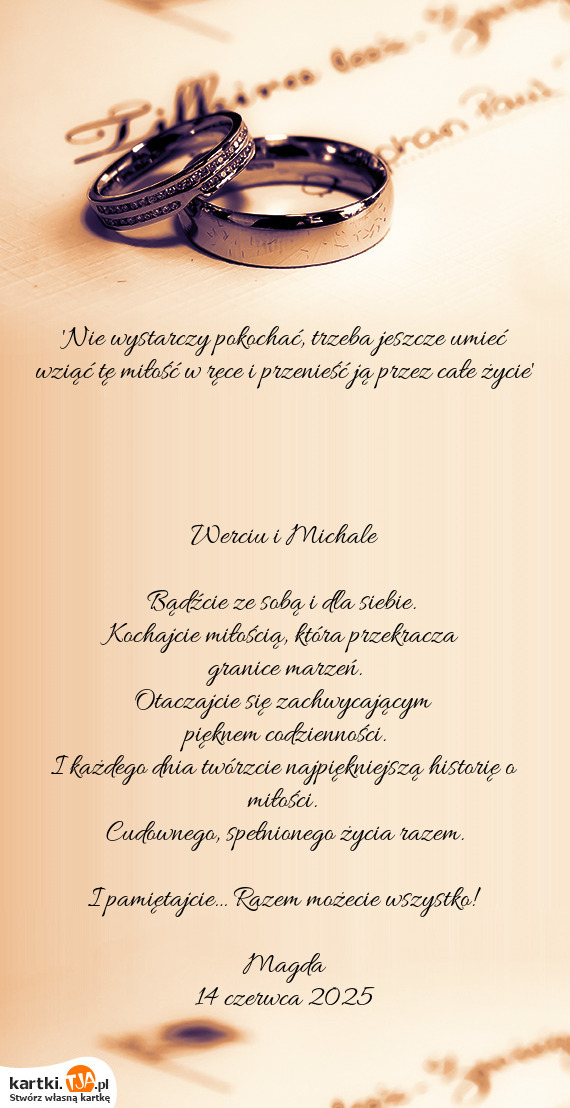 'Nie wystarczy pokochać, trzeba jeszcze umieć
wziąć tę miłość w ręce i przenieść ją przez całe życie'
Werciu i Michale
Bądźcie ze sobą i dla siebie.
Kochajcie miłością, która przekracza
granice marzeń.
Otaczajcie się zachwycającym
pięknem codzienności.
I każdego dnia twórzcie najpiękniejszą historię o
miłości.
Cudownego, spełnionego życia razem.
I pamiętajcie... Razem możecie wszystko!
Magda
14 czerwca 2025
kartki.TJA.pl
Stwórz własną kartkę